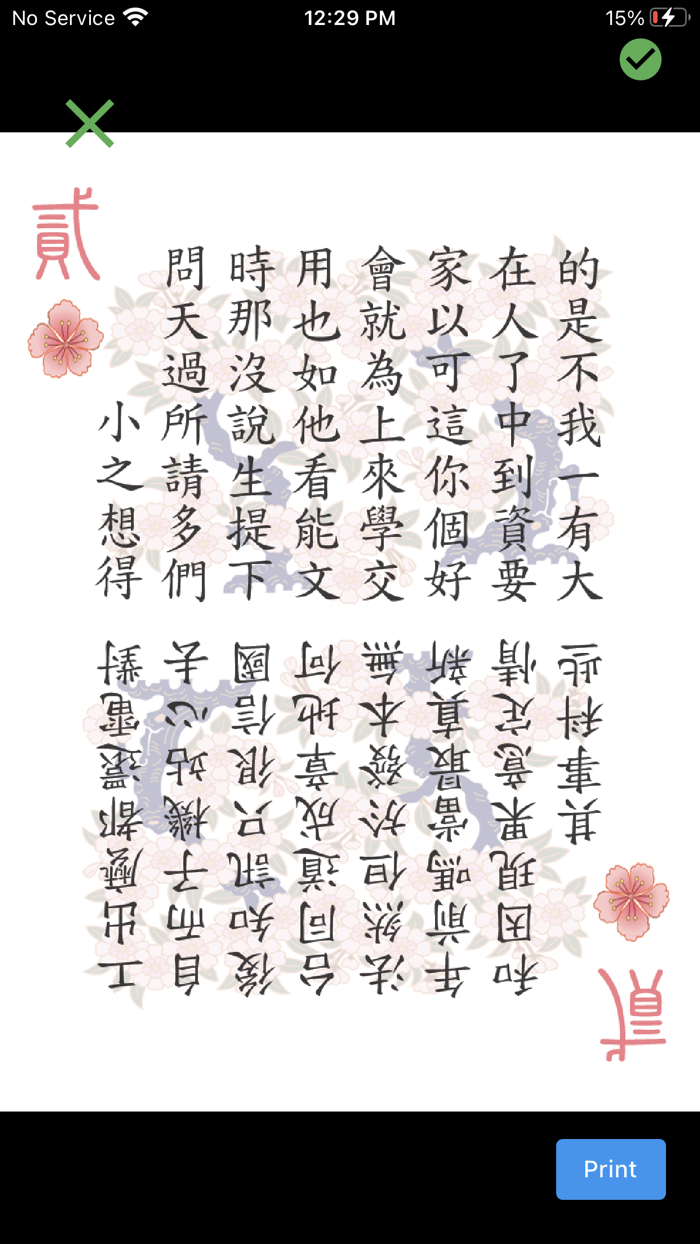 No Service
12:29 PM
15%
貳
的是不我一有大
在人了中到資要
家以可這你個好
會就為上來學交
用也如他看能文
時那沒說生提下
問天過所請多們
小之想得
貳
工出麼都還電對
自而子機站心去
後知訊只很信國
台同道成章地何
法然但於發本無
年前嗎當最真新
和因現果意定情
其事科些
Print